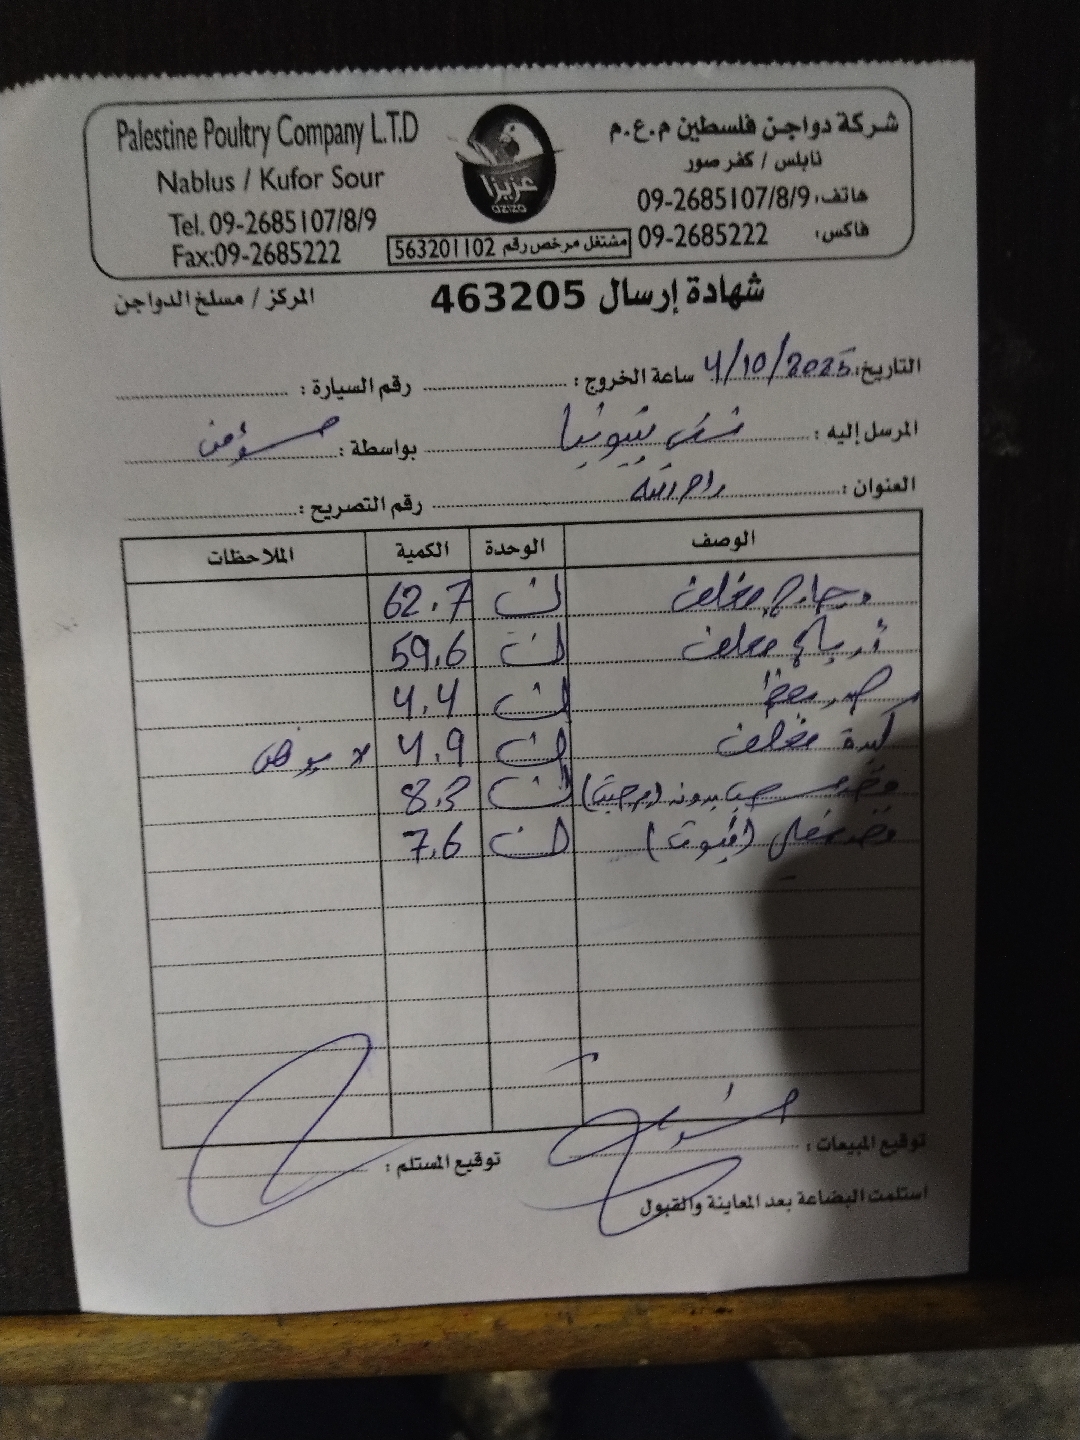 Palestine Poultry Company L.T.D
Nablus / Kufor Sour
Tel. 09-2685107/8/9
Fax:09-2685222
عزيزا
aziza
مشتغل مرخص رقم 563201102
شركة دواجن فلسطين م.ع.م
نابلس / كفر صور
هاتف: 09-2685107/8/9
فاكس: 09-2685222
شهادة إرسال 463205
المركز / مسلخ الدواجن
التاريخ: 4/10/2025 ساعة الخروج : رقم السيارة :
المرسل إليه : بواسطة : مؤمن
العنوان : رام الله رقم التصريح :
الوصف الوحدة الكمية الملاحظات
دجاج مغلف 62.7
مغلف 59.6
4.4
كبدة مغلف 4.9
8.3
7.6
توقيع المبيعات : توقيع المستلم :
استلمت البضاعة بعد المعاينة والقبول